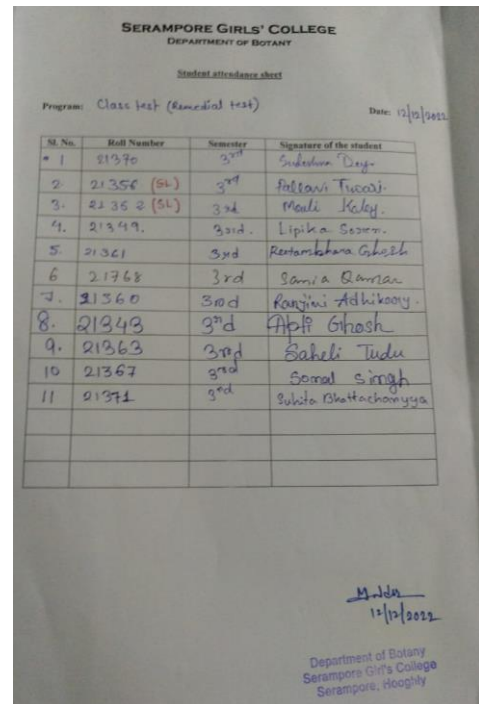 SERAMPORE GIRLS' COLLEGE
DEPARTMENT OF BOTANY
Student attendance sheet
Program: Class test (Remedial test)
Date: 12/12/2022
Sl. No. Roll Number Semester Signature of the student
1 21370 3rd Sudeshna Dey.
2. 21356 (SL) 3rd Pallavi Tiwari.
3. 21352 (SL) 3rd Mouli Koley.
4. 21349. 3rd. Lipika Soren.
5. 21361 3rd Reetambhara Ghosh
6 21768 3rd Samia Qamar
7. 21360 3rd Ranjini Adhikary.
8. 21343 3rd Apti Ghosh
9. 21363 3rd Saheli Tudu
10 21367 3rd Somal Singh
11 21371 3rd Suhita Bhattacharyya
12/12/2022
Department of Botany
Serampore Girl's College
Serampore, Hooghly